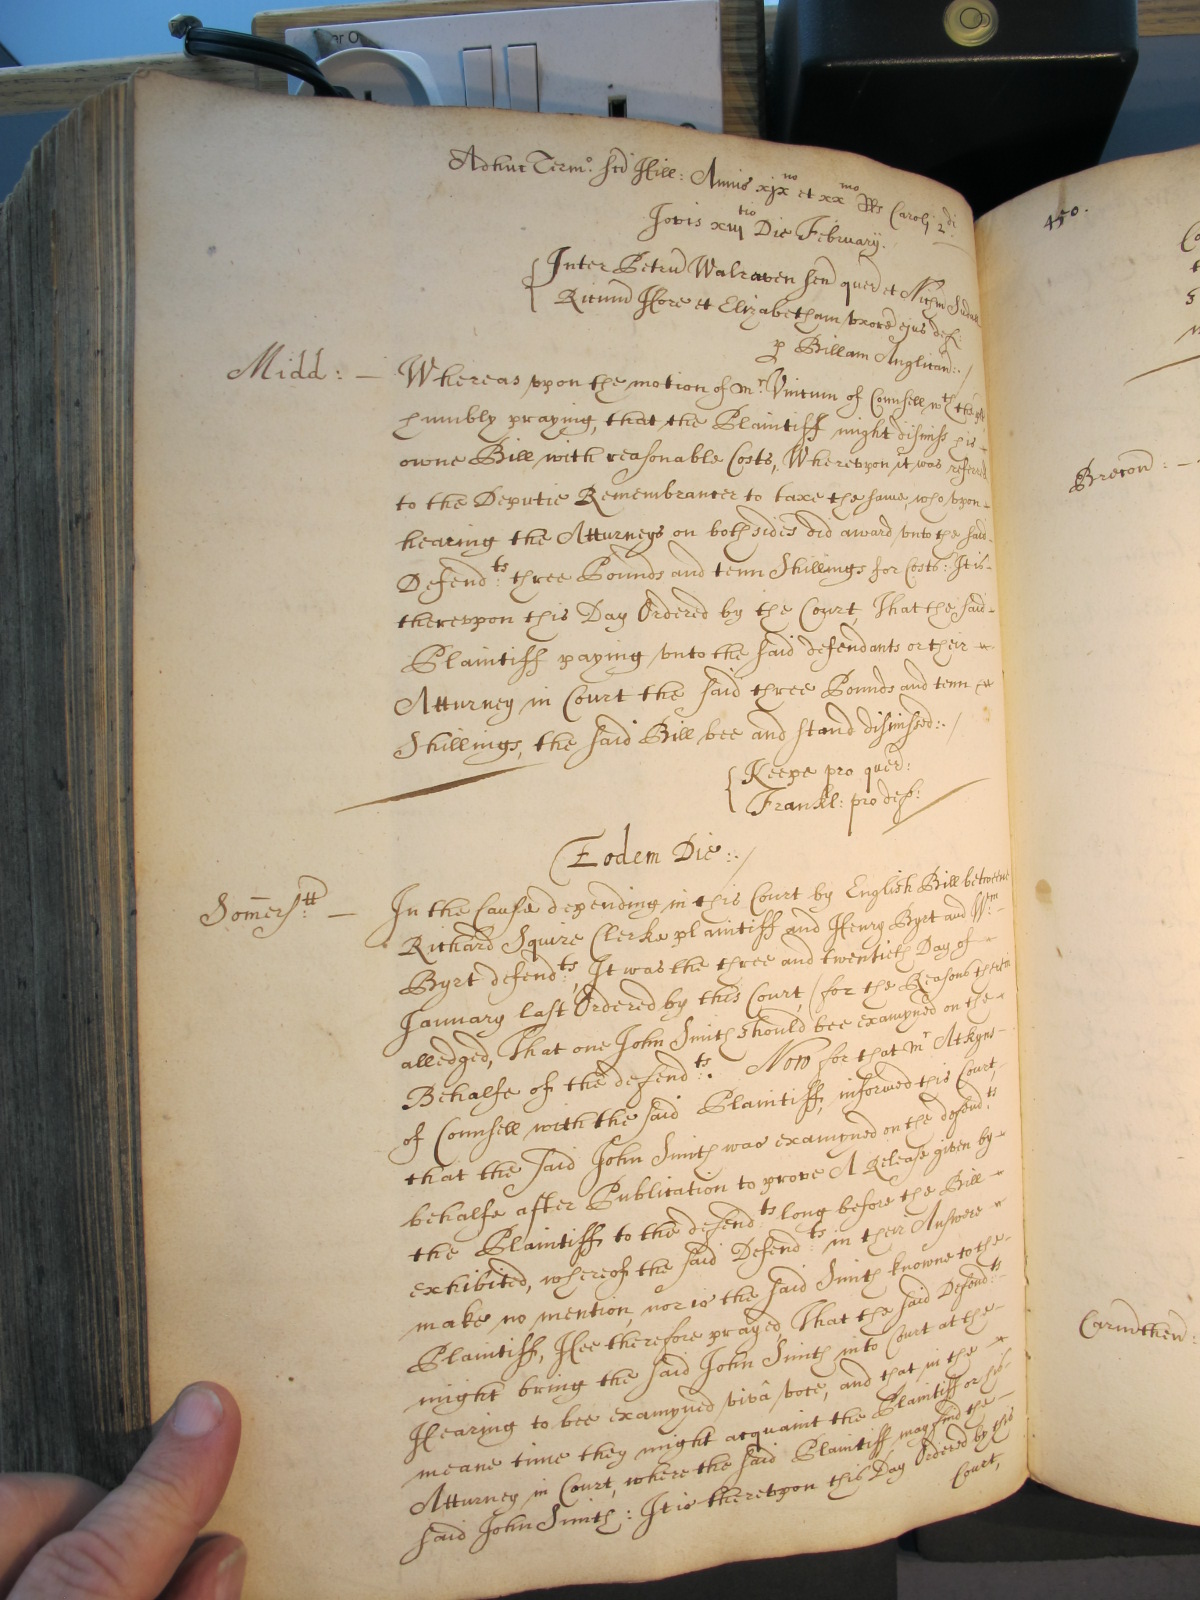 Adhuc Termo: Scd Hill: Annis xixno et xxmo Rs Caroli 2di
Jovis xiijtio Die February.
Inter Petrū Walraven Sen quer et
Ricūm Hore et Elizabetham uxore ejus def:
p Billam Anglican:./
Midd: — Whereas upon the motion of mr. of Counsell wth the
humbly praying, that the Plaintiff might dismiss his
owne Bill with reasonable Costs, Whereupon it was referrd
to the Deputie Remembrancer to taxe the same, who upon
hearing the Atturneys on both sides did award unto the said
Defend:ts three Pounds and tenn Shillings for Costs: It is
thereupon this Day Ordered by the Court, That the said
Plaintiff paying unto the said defendants or their
Atturney in Court the said three Pounds and tenn
Shillings, the said Bill bee and stand dismissed:./
Keepe pro quer:
Frankl: pro def:
Eodem Die:./
Somers:tt — In the Cause depending in this Court by English Bill betweene
Richard Squire Clerke plaintiff and Henry Byrt and Wm:
Byrt defend:ts, It was the three and twentieth Day of
January last Ordered by this Court, (for the Reasons therein
alledged, That one John Smith should bee examyned on the
Behalfe of the defend:ts. Now for that mr Atkyns
of Counsell with the said Plaintiff, informed this Court,
that the said John Smith was examyned on the defend:ts
behalfe after Publication to prove A Release given by
the Plaintiff to the defend:ts long before the Bill
exhibited, whereof the said Defend:ts in their Answere
make no mention, nor is the said Smith knowne to the
Plaintiff, Hee therefore prayed, That the said Defend:ts
might bring the said John Smith into Court at the
Hearing to bee examyned vivâ voce, and that in the
meane time they might acquaint the Plaintiff or his
Atturney in Court, where the said Plaintiff may find the
said John Smith: It is thereupon this Day Ordered by this
Court,
450.
Brecon: —
Carmthen: